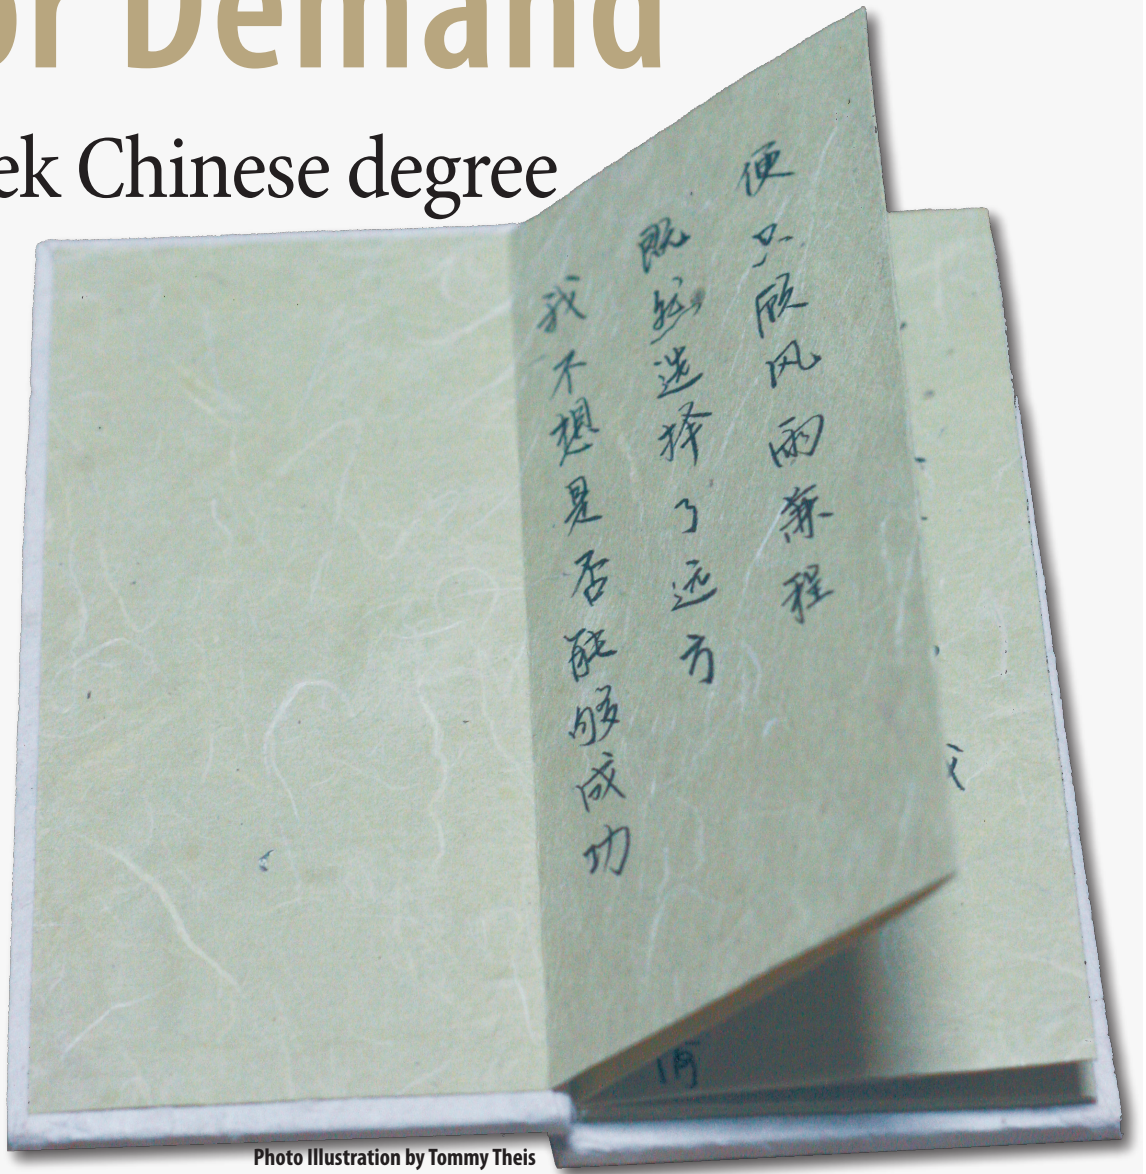 or Demand
ek Chinese degree
我不想是否能够成功
既然选择了远方
便只顾风雨兼程
Photo Illustration by Tommy Theis